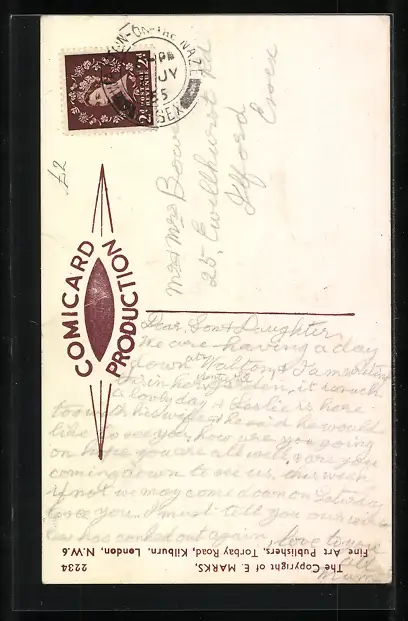 WALTON-ON-THE-NAZE
PM
JY
5
ESSEX
2½d POSTAGE REVENUE 2½d
£2
Mr & Mrs Bowe
25, Ewellhurst Rd
Ilford
Essex
COMICARD
PRODUCTION
Dear, Son & Daughter,
We are having a day
down at Walton & I am writing
this in her garden, it is such
a lovely day & Leslie is here
too with his wife & he said he would
like to see you, how are you going
on hope you are all well, & are you
coming down to see us, this week
if not we may come down on Saturday
to see you. I must tell you our
has conked out again, love to you
all
Mum
The Copyright of E. MARKS,
Fine Art Publishers, Torbay Road, Kilburn, London, N.W.6.
2234